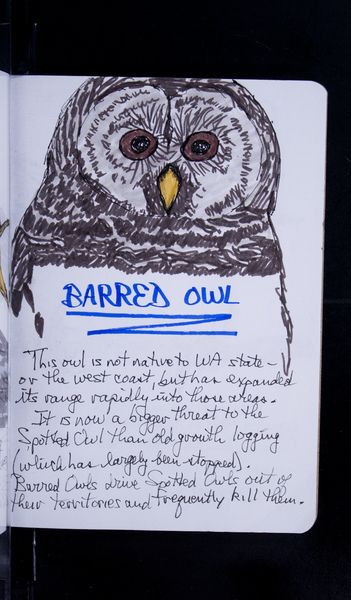 BARRED OWL
This owl is not native to WA state -
or the west coast, but has expanded
its range rapidly into those areas.
It is now a bigger threat to the
Spotted Owl than old growth logging
(which has largely been stopped).
Barred Owls drive Spotted Owls out of
their territories and frequently kill them.